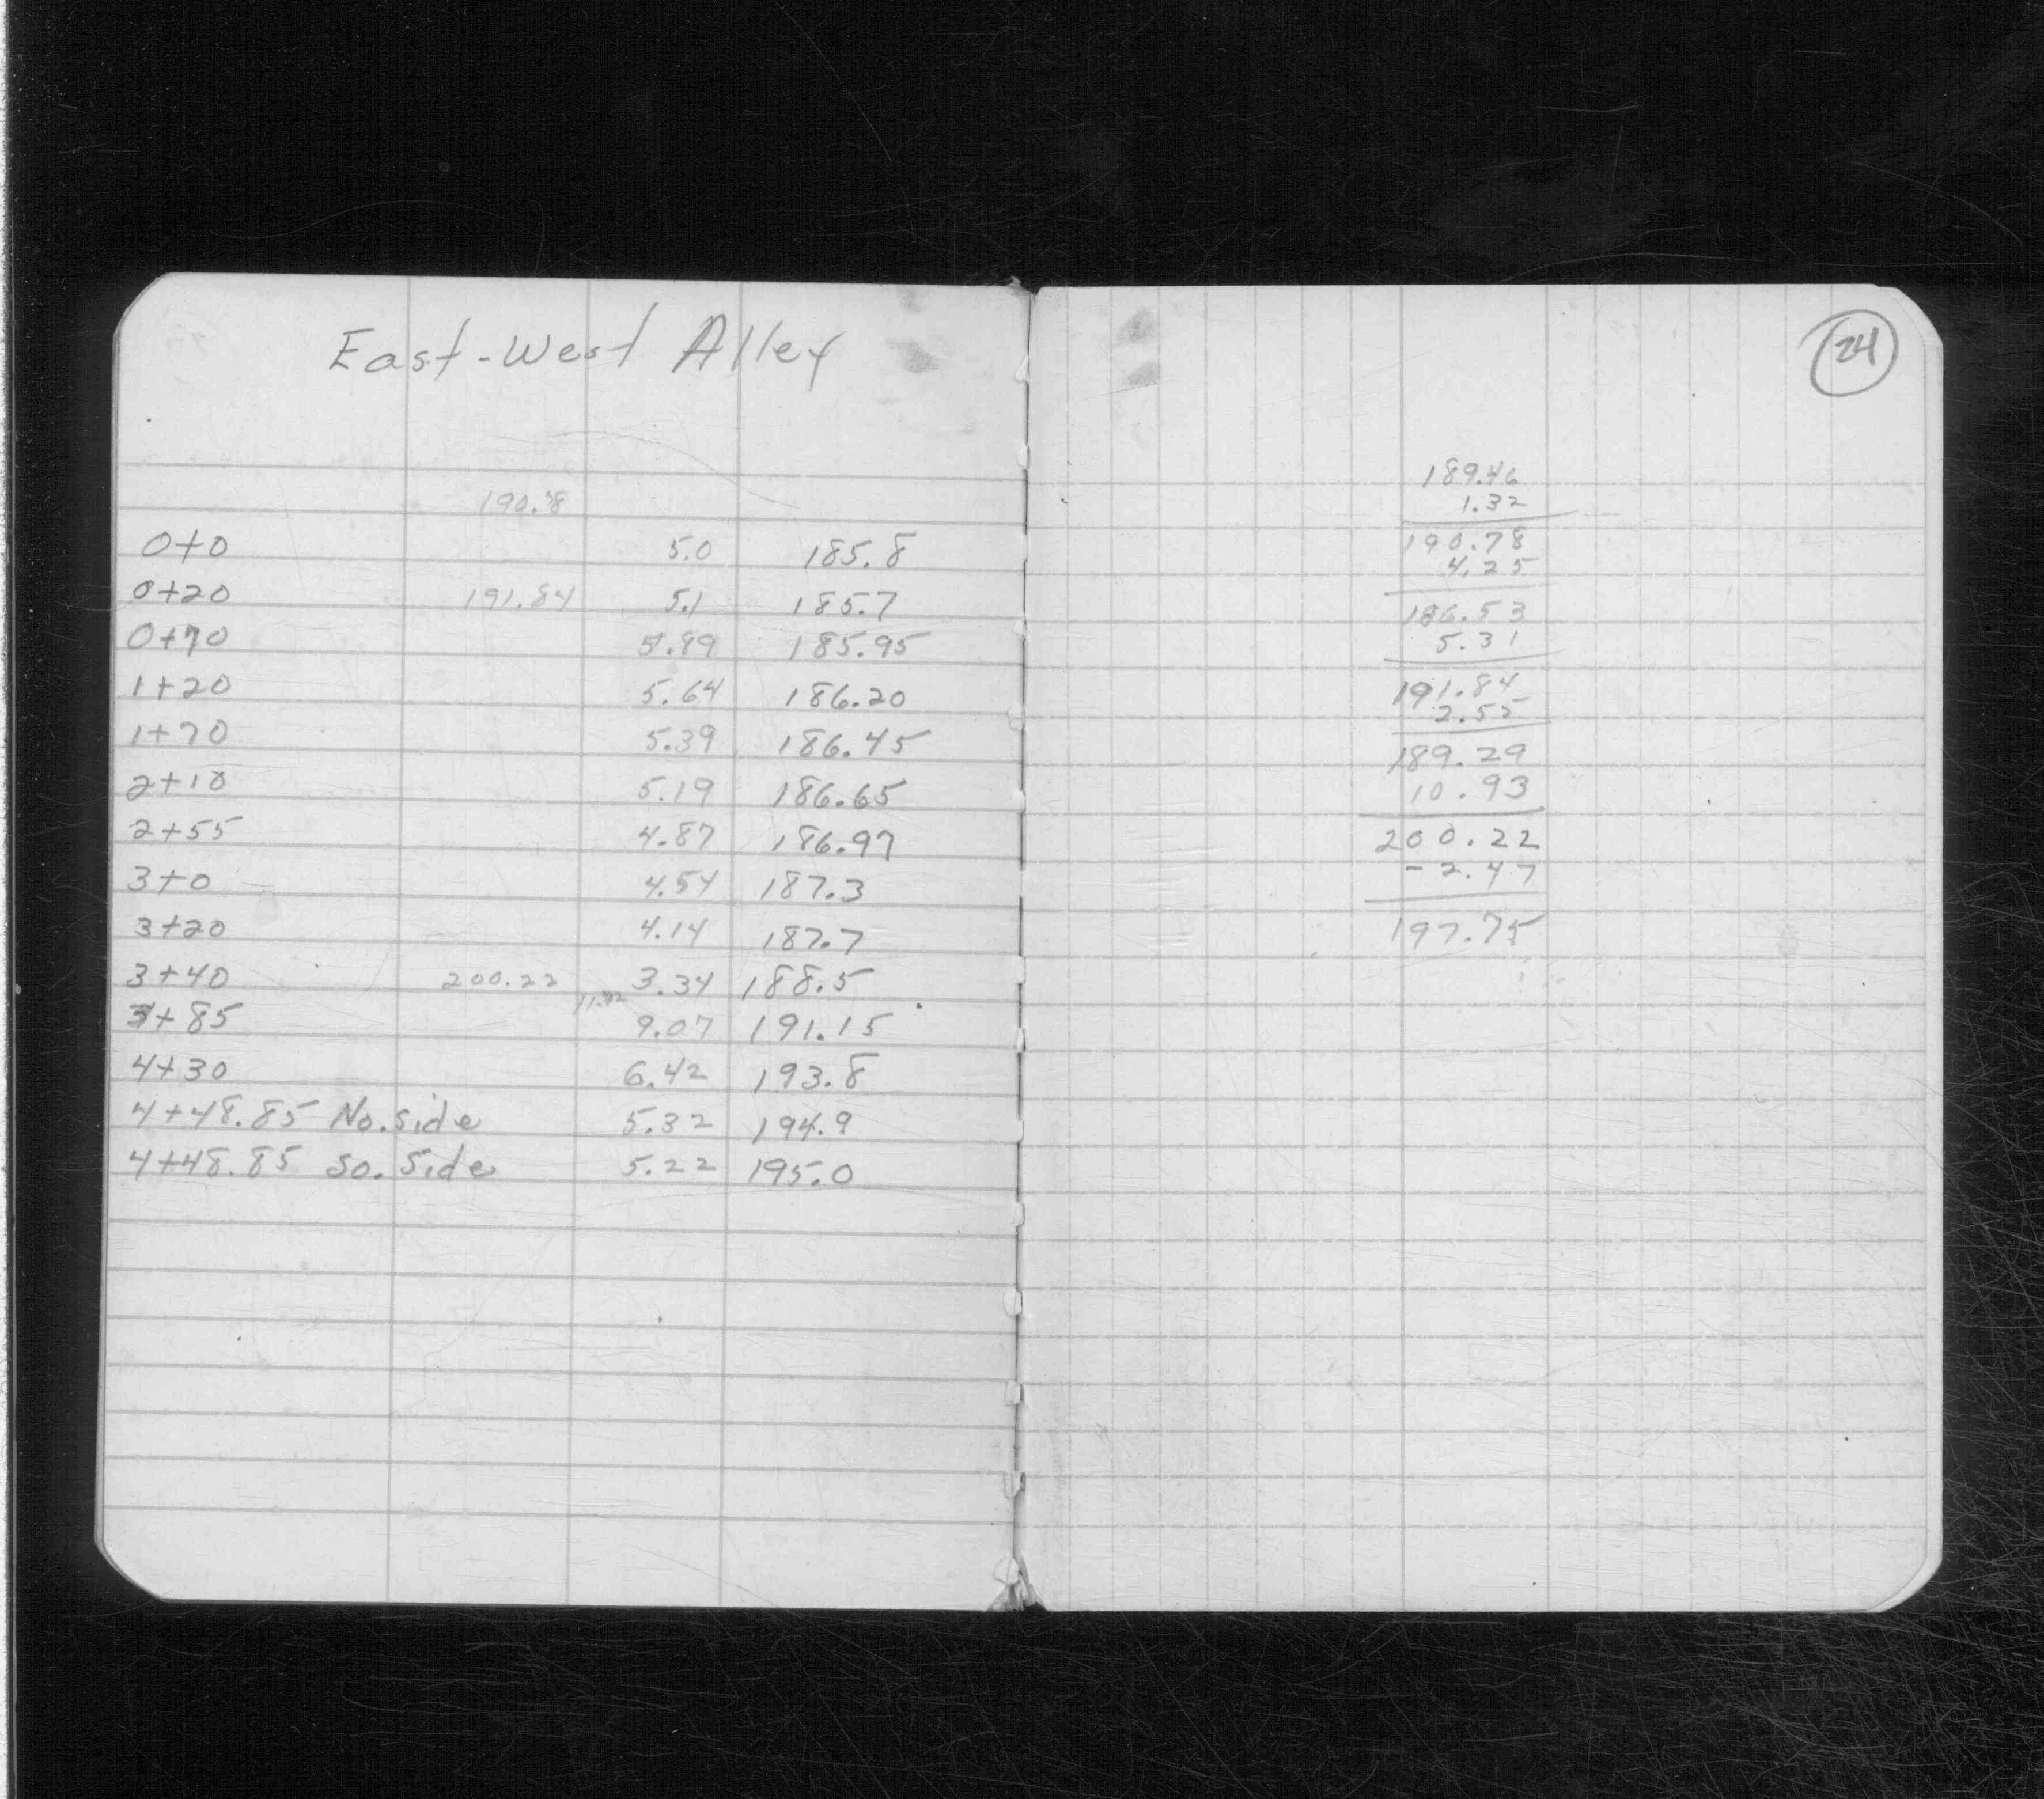 East-West Alley
190.78
0+0 5.0 185.8
0+20 191.84 5.1 185.7
0+70 5.89 185.95
1+20 5.64 186.20
1+70 5.39 186.45
2+10 5.19 186.65
2+55 4.87 186.97
3+0 4.54 187.3
3+20 4.14 187.7
3+40 200.22 3.34 188.5
3+85 9.07 191.15
4+30 6.42 193.8
4+48.85 No. side 5.32 194.9
4+48.85 So. Side 5.22 195.0
24
189.46
1.32
190.78
4.25
186.53
5.31
191.84
2.55
189.29
10.93
200.22
-2.47
197.75